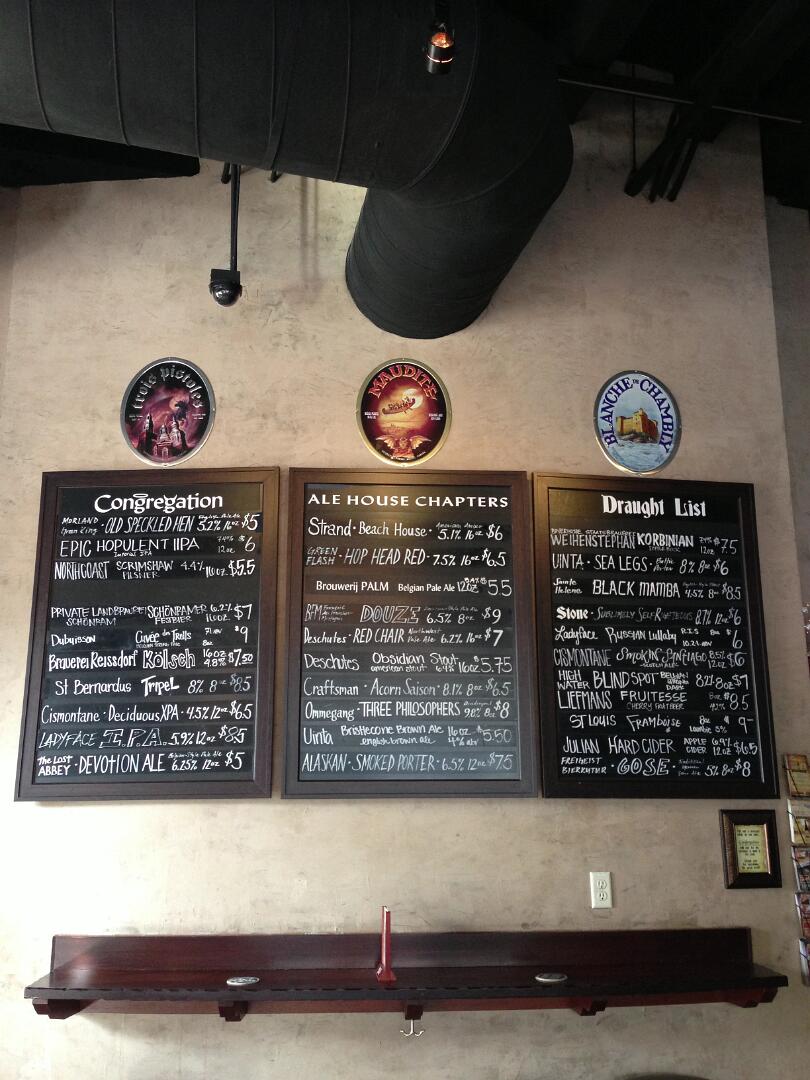 trois pistoles
MAUDITE
BLANCHE DE CHAMBLY
Congregation
MORLAND OLD SPECKLED HEN 5.2% 16oz $5
EPIC HOPULENT IIPA 12oz $6
NORTHCOAST SCRIMSHAW PILSNER 4.4% 16oz $5.5
PRIVATE LANDBRAUEREI SCHÖNRAM SCHÖNRAMER FESTBIER 6.2% 16oz $7
Dubuisson Cuvée des Trolls 8oz $9
Brauerei Reissdorf Kölsch 16oz 4.8% $7.50
St Bernardus TRIPEL 8% 8oz $8.5
Cismontane · Deciduous XPA · 4.5% 12oz $6.5
LADYFACE I.P.A. 5.9% 12oz $8.5
The Lost ABBEY · DEVOTION ALE Belgian-Style Pale Ale 6.25% 12oz $5
ALE HOUSE CHAPTERS
Strand · Beach House · American Amber 5.1% 16oz $6
GREEN FLASH · HOP HEAD RED · 7.5% 16oz $6.5
Brouwerij PALM Belgian Pale Ale 12oz 5.5
BFM DOUZE 6.5% 8oz $9
Deschutes · RED CHAIR Northwest Pale Ale 6.2% 16oz $7
Deschutes Obsidian Stout american stout 6.4% 16oz $5.75
Craftsman · Acorn Saison · 8.1% 8oz $6.5
Ommegang · THREE PHILOSOPHERS 9.8% 8oz $8
Uinta Bristlecone Brown Ale english brown ale 16oz 4% abv $5.50
ALASKAN · SMOKED PORTER · 6.5% 12oz $7.5
Draught List
WEIHENSTEPHAN KORBINIAN 7.4% 12oz $7.5
UINTA · SEA LEGS · Baltic Porter 8% 8oz $6
Sainte Helene BLACK MAMBA 4.5% 8oz $8.5
Stone · SUBLIMELY SELF-RIGHTEOUS 8.7% 12oz $6
Ladyface Russian Lullaby R.I.S 8oz $6
CISMONTANE SMOKIN' SANTIAGO 8.5% 12oz $6
HIGH WATER BLIND SPOT 8.2% 8oz $7
LIEFMANS FRUITESSE CHERRY FRUIT BEER 8oz 4.2% $8.5
ST LOUIS Framboise 8oz Lambic $9-
JULIAN HARD CIDER APPLE CIDER 6.9% 12oz $6.5
FREIHEIT BIERKULTUR · GOSE · 5% 8oz $8